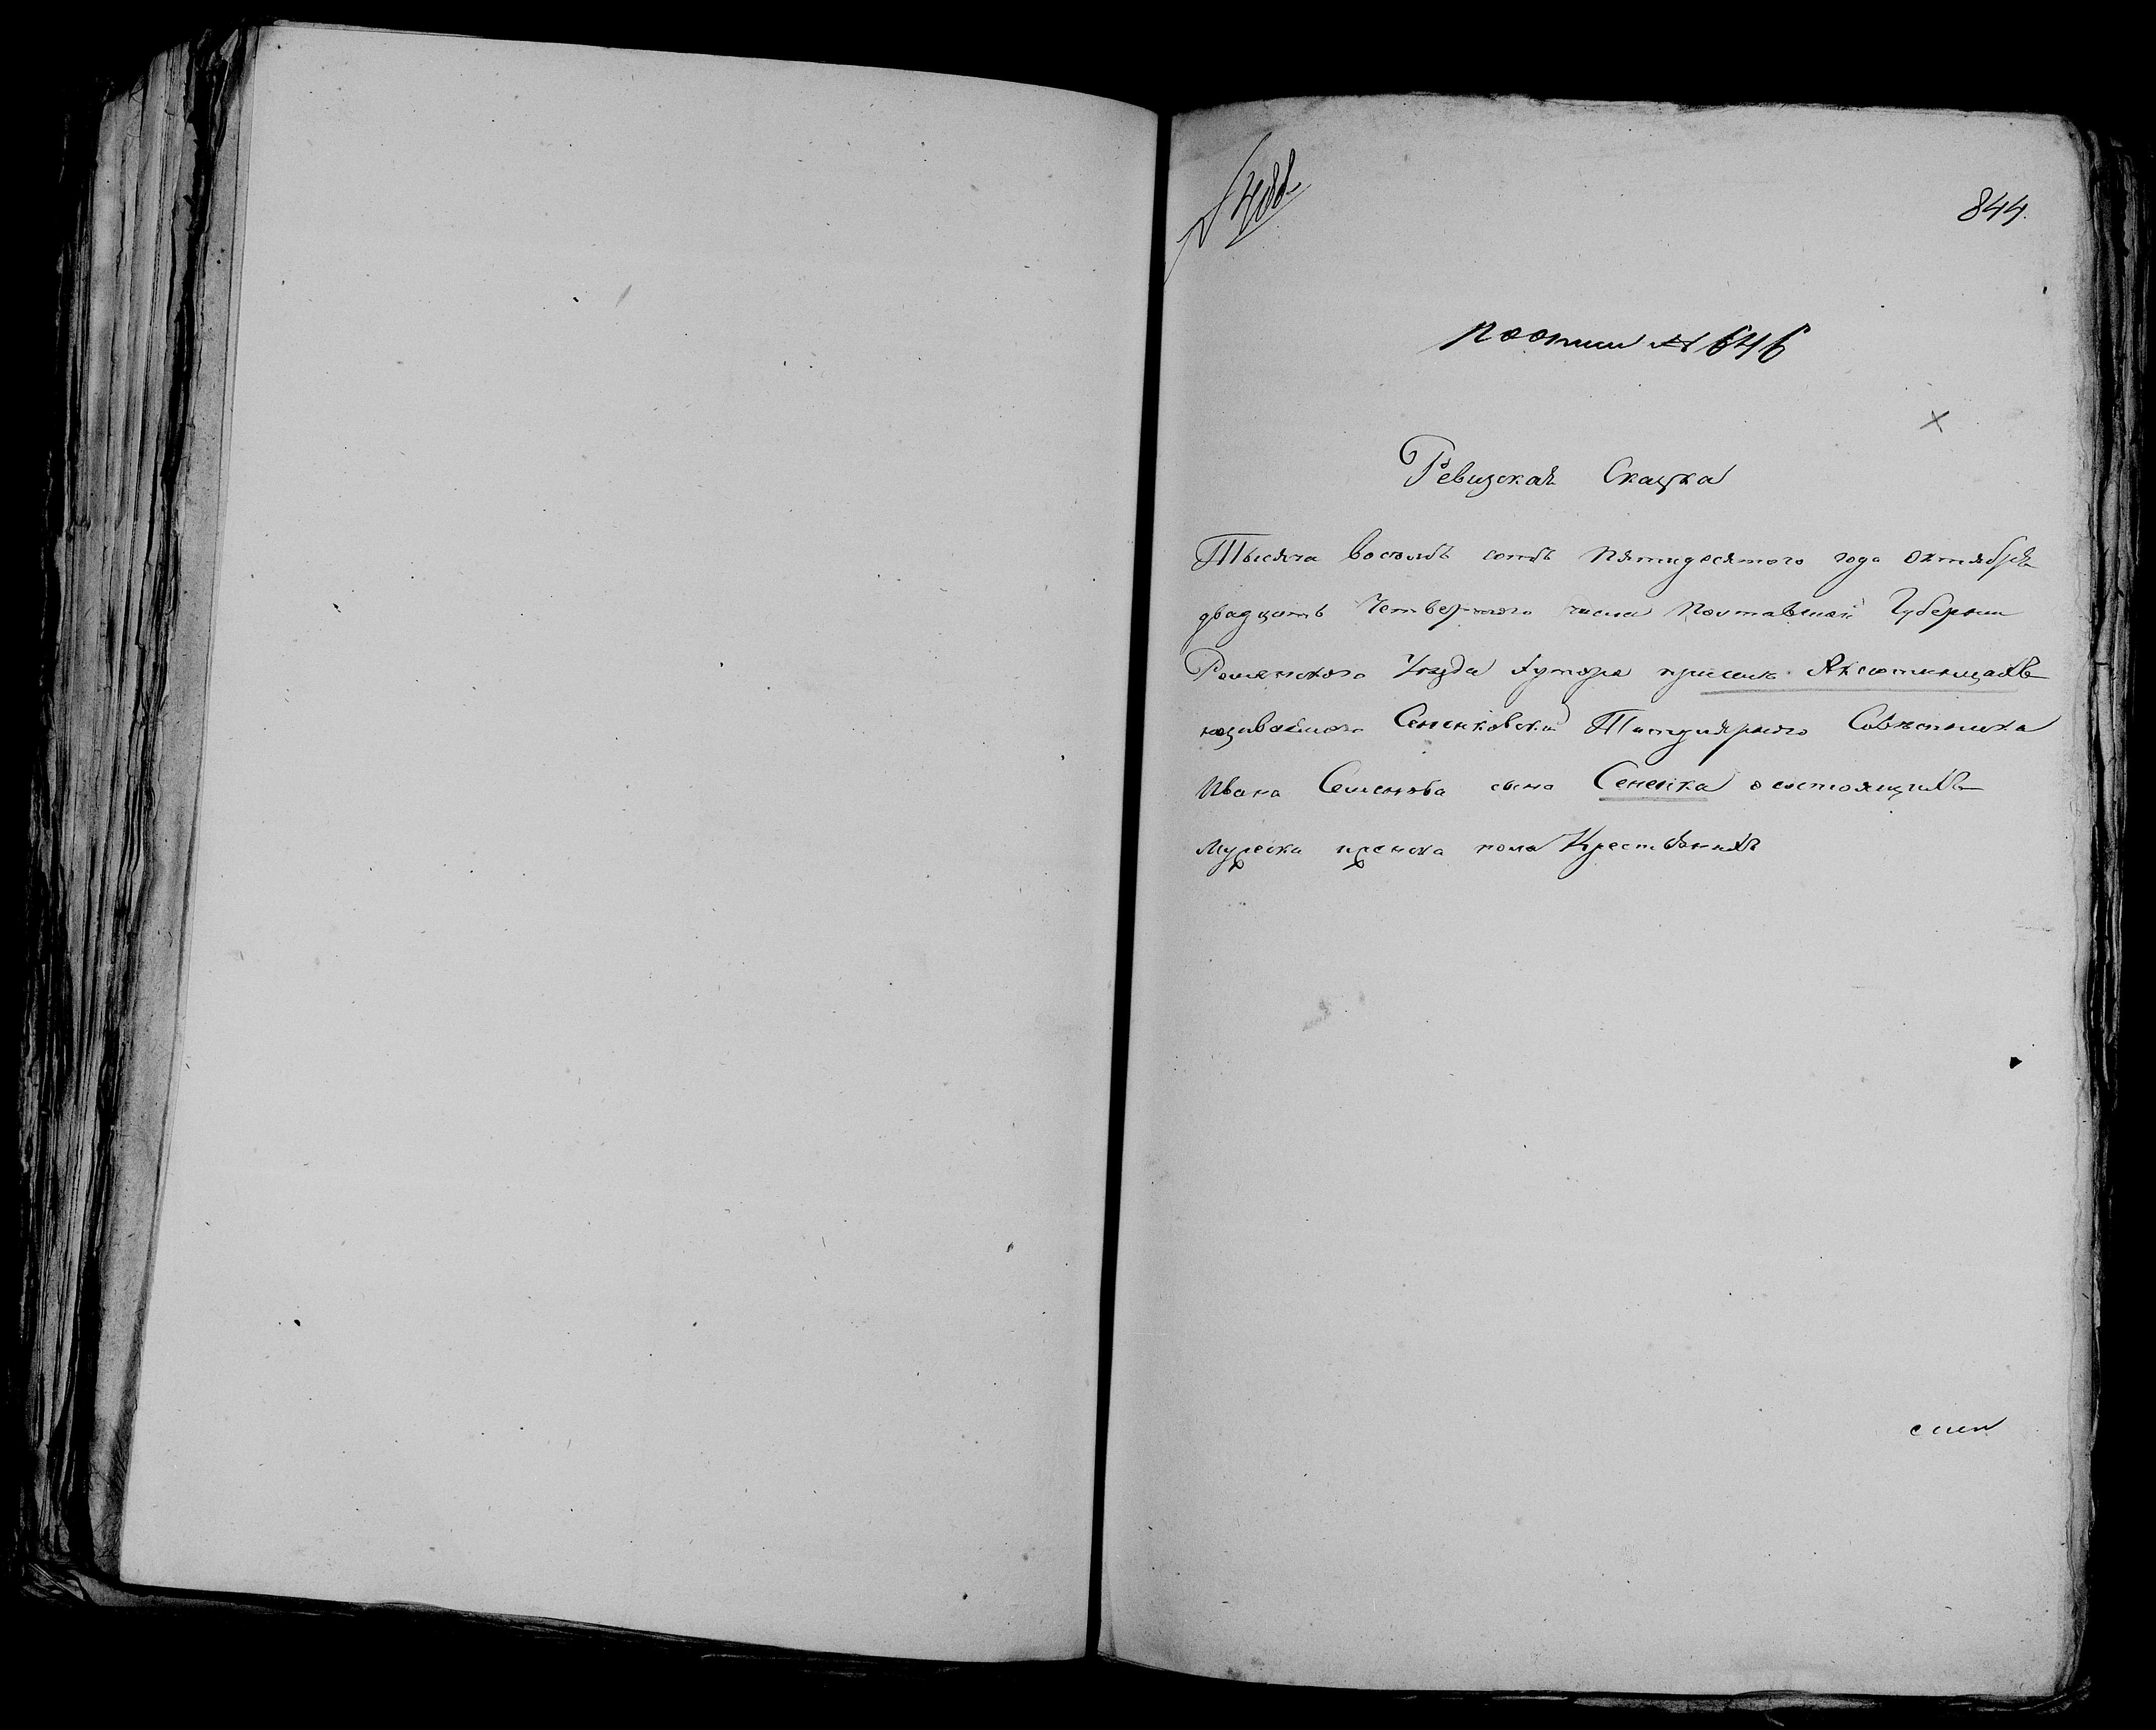 844.
по описи № 646
Ревизская Сказка
Тысяча восемь сотъ пятидесятого года Октября
двадцать Четвертого числа Полтавской Губернии
Роменского Уезда хутора при селе Аксютинцахъ
називаемого Сененковский Титулярного Советника
Ивана Семенова сына Сененка о состоящихъ
мужеска и женска пола Крестьянахъ